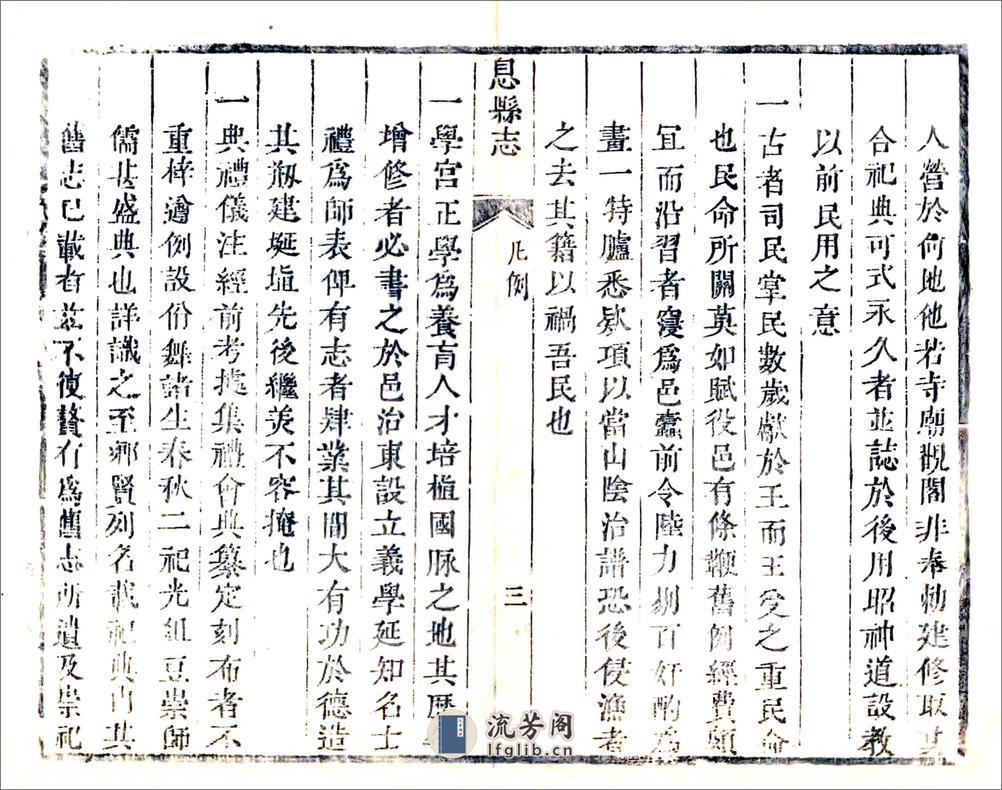 人營於何地他若寺廟觀閣非奉勅建修取其
合祀典可式永久者並誌於後用昭神道設教
以前民用之意
一古者司民掌民數歲獻於王而王受之重民命
也民命所關莫如賦役邑有條鞭舊例經費頗
宜而沿習者寖為邑蠹前令陸力剔百奸酌為
畫一特臚悉欵項以當山陰治譜恐後侵漁者
之去其籍以禍吾民也
息縣志
凡例
三
一學宮正學爲養育人才培植國脉之地其歷
增修者必書之於邑治東設立義學延知名士
禮爲師表俾有志者肄業其間大有功於德造
其剏建埏埴先後繼美不容掩也
一典禮儀注經前考據集禮會典纂定刻布者不
重梓邊例設佾舞諸生春秋二祀光俎豆崇師
儒甚盛典也詳識之至鄉賢列名載祀典内其
舊志已載者並不復贅有爲舊志所遺及崇祀
流芳阁
lfglib.cn